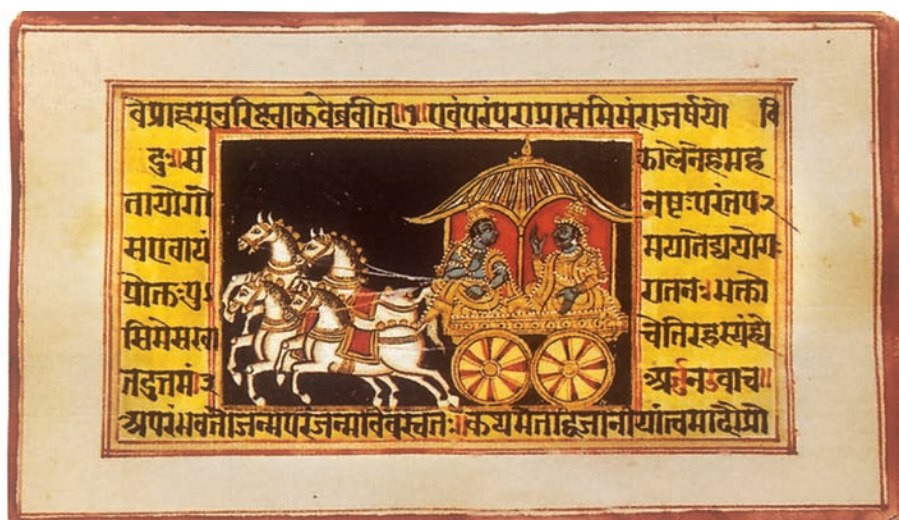 वेप्राहमनुरिक्ष्वाकवेब्रवीत॥१ एवंपरंपराप्राप्तमिमंराजर्षयो वि
दुः॥स कालेनेहमह
तायोगो नष्टःपरंतप२
सएवायं मयातेद्ययोगः
प्रोक्तःपु रातनः॥भक्तो
सिमेसखा चेतिरहस्यंह्ये
तदुत्तमं॥३ अर्जुनउवाच॥
अपरंभवतोजन्मपरंजन्मविवस्वतः॥कथमेतद्विजानीयांत्वमादौप्रो